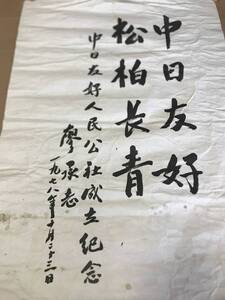 中日友好
松柏長青
中日友好人民公社成立纪念
廖承志
一九七八年十月二十三日